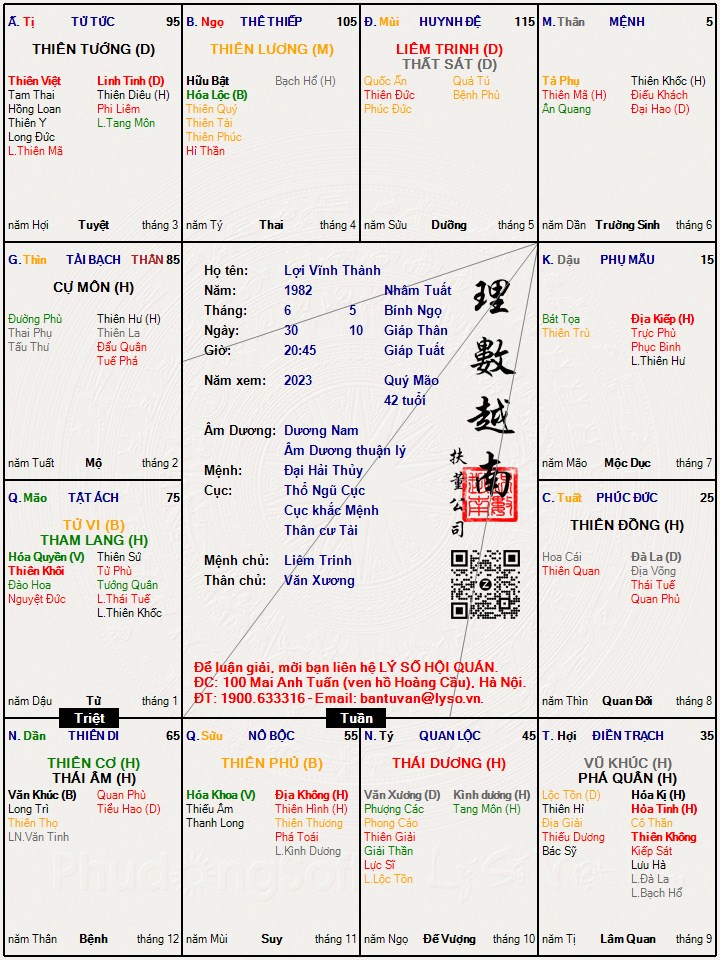 Ấ. Tị TỬ TỨC 95
THIÊN TƯỚNG (D)
Thiên Việt Linh Tinh (D)
Tam Thai Thiên Diêu (H)
Hồng Loan Phi Liêm
Thiên Y L.Tang Môn
Long Đức
L.Thiên Mã
năm Hợi Tuyệt tháng 3
B. Ngọ THÊ THIẾP 105
THIÊN LƯƠNG (M)
Hữu Bật Bạch Hổ (H)
Hóa Lộc (B)
Thiên Quý
Thiên Tài
Thiên Phúc
Hỉ Thần
năm Tý Thai tháng 4
Đ. Mùi HUYNH ĐỆ 115
LIÊM TRINH (D)
THẤT SÁT (D)
Quốc Ấn Quả Tú
Thiên Đức Bệnh Phù
Phúc Đức
năm Sửu Dưỡng tháng 5
M. Thân MỆNH 5
Tả Phụ Thiên Khốc (H)
Thiên Mã (H) Điếu Khách
Ân Quang Đại Hao (D)
năm Dần Trường Sinh tháng 6
G. Thìn TÀI BẠCH THÂN 85
CỰ MÔN (H)
Đường Phù Thiên Hư (H)
Thai Phụ Thiên La
Tấu Thư Đẩu Quân
Tuế Phá
năm Tuất Mộ tháng 2
Họ tên: Lợi Vĩnh Thành
Năm: 1982 Nhâm Tuất
Tháng: 6 5 Bính Ngọ
Ngày: 30 10 Giáp Thân
Giờ: 20:45 Giáp Tuất
Năm xem: 2023 Quý Mão
42 tuổi
Âm Dương: Dương Nam
Âm Dương thuận lý
Mệnh: Đại Hải Thủy
Cục: Thổ Ngũ Cục
Cục khắc Mệnh
Thân cư Tài
Mệnh chủ: Liêm Trinh
Thân chủ: Văn Xương
理數越南
扶董公司
Để luận giải, mời bạn liên hệ LÝ SỐ HỘI QUÁN.
ĐC: 100 Mai Anh Tuấn (ven hồ Hoàng Cầu), Hà Nội.
ĐT: 1900.633316 - Email: bantuvan@lyso.vn.
K. Dậu PHỤ MẪU 15
Bát Tọa Địa Kiếp (H)
Thiên Trù Trực Phù
Phục Binh
L.Thiên Hư
năm Mão Mộc Dục tháng 7
Q. Mão TẬT ÁCH 75
TỬ VI (B)
THAM LANG (H)
Hóa Quyền (V) Thiên Sứ
Thiên Khôi Tử Phù
Đào Hoa Tướng Quân
Nguyệt Đức L.Thái Tuế
L.Thiên Khốc
năm Dậu Tử tháng 1
C. Tuất PHÚC ĐỨC 25
THIÊN ĐỒNG (H)
Hoa Cái Đà La (D)
Thiên Quan Địa Võng
Thái Tuế
Quan Phủ
năm Thìn Quan Đới tháng 8
Triệt
Tuần
N. Dần THIÊN DI 65
THIÊN CƠ (H)
THÁI ÂM (H)
Văn Khúc (B) Quan Phù
Long Trì Tiểu Hao (D)
Thiên Thọ
LN.Văn Tinh
năm Thân Bệnh tháng 12
Q. Sửu NÔ BỘC 55
THIÊN PHỦ (B)
Hóa Khoa (V) Địa Không (H)
Thiếu Âm Thiên Hình (H)
Thanh Long Thiên Thương
Phá Toái
L.Kình Dương
năm Mùi Suy tháng 11
N. Tý QUAN LỘC 45
THÁI DƯƠNG (H)
Văn Xương (D) Kình dương (H)
Phượng Các Tang Môn (H)
Phong Cáo
Thiên Giải
Giải Thần
Lực Sĩ
L.Lộc Tồn
năm Ngọ Đế Vượng tháng 10
T. Hợi ĐIỀN TRẠCH 35
VŨ KHÚC (H)
PHÁ QUÂN (H)
Lộc Tồn (D) Hóa Kị (H)
Thiên Hỉ Hỏa Tinh (H)
Địa Giải Cô Thần
Thiếu Dương Thiên Không
Bác Sỹ Kiếp Sát
Lưu Hà
L.Đà La
L.Bạch Hổ
năm Tị Lâm Quan tháng 9